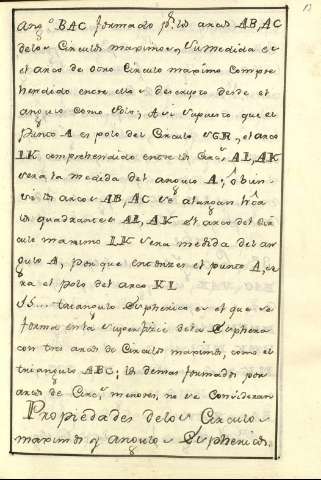 Angº BAC formado pr los arcos AB, AC
delos Circulos maximos, su medida es
el arco de otro Circulo maximo Compre
hendido entre ellos descrupto desde el
angulo como Polo; Asi supuesto que el
punto A es polo del Circulo SGR, el arco
IK comprehendido entre los Circs AI, AK
sera la medida del angulo A; o bien
si los arcos AB, AC se alargan hta
los quadrantes AI, AK el arco del Cir
culo maximo IK sera medida del an
gulo A, porque entonzes el punto A, se
ra el polo del arco KI
15... triangulo Espherico es el que se
forma en la superficie dela Esphera
con tres arcos de Circulos maximos, como el
triangulo ABC; los demas formados por
arcos de Circs menores, no se Consideran
Propiedades delos Circulos
maximos y angulos Esphericos.